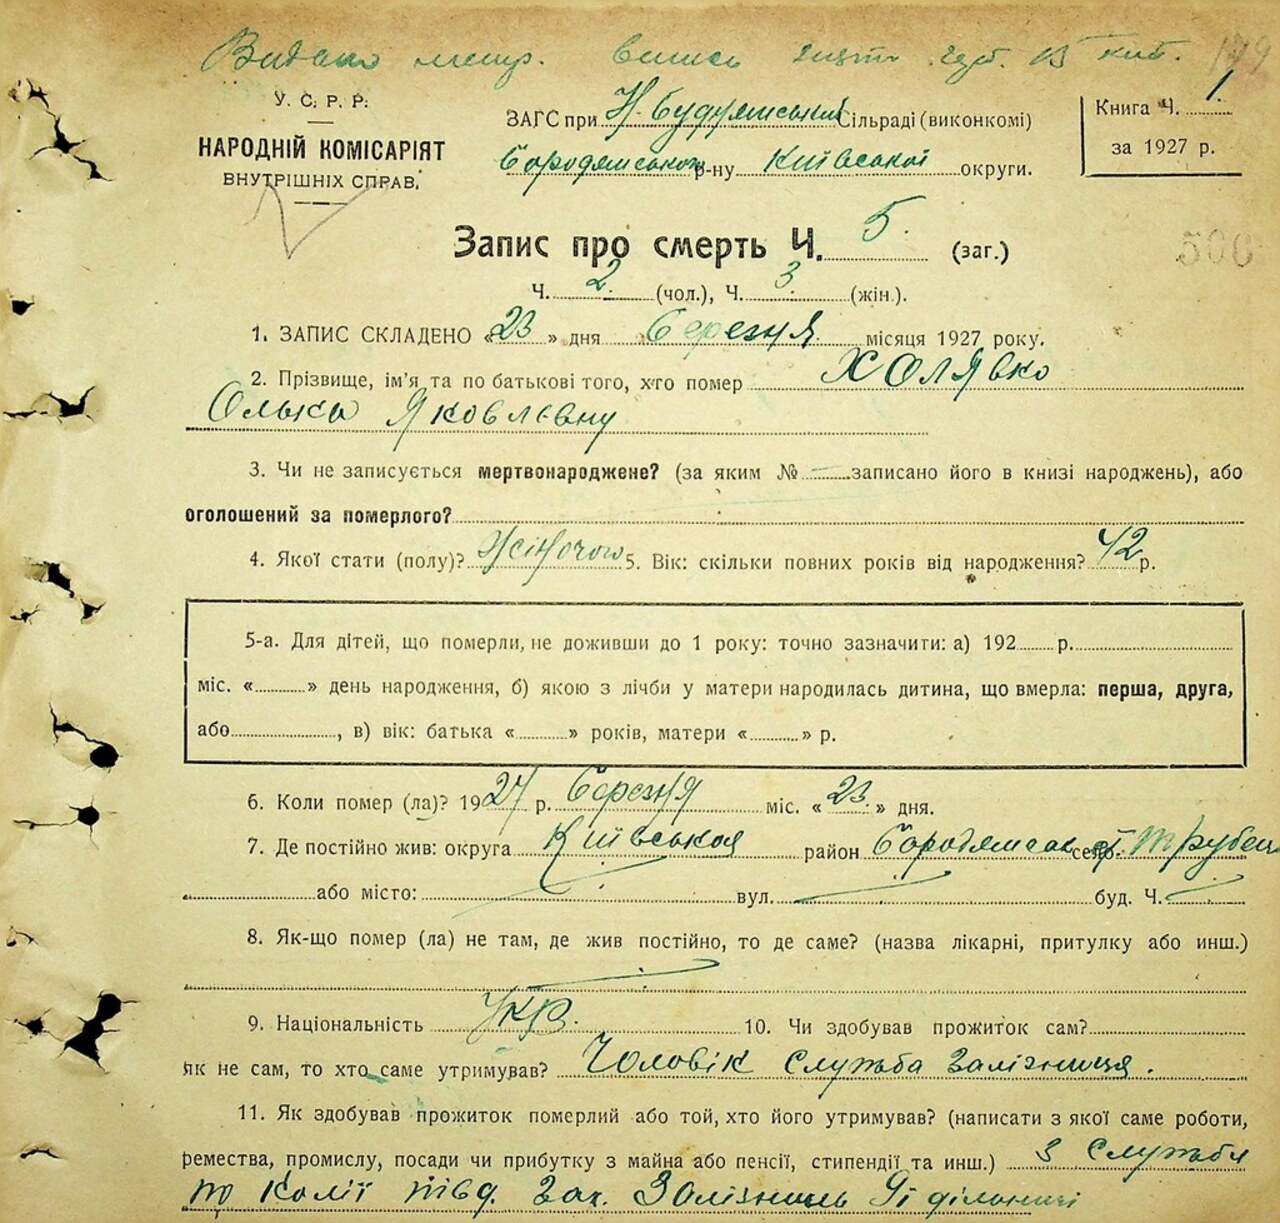 Видано метр.
179
У. С. Р. Р.
НАРОДНІЙ КОМІСАРІЯТ
ВНУТРІШНІХ СПРАВ.
ЗАГС при Н. Будянський Сільраді (виконкомі)
Бородянського р-ну Київської округи.
Книга Ч. 1
за 1927 р.
Запис про смерть Ч. 5. (заг.)
500
Ч. 2. (чол.), Ч. 3 (жін.).
1. ЗАПИС СКЛАДЕНО «23» дня березня місяця 1927 року.
2. Прізвище, ім'я та по батькові того, хто помер Холявко
Ольку Яковлєвну
3. Чи не записується мертвонароджене? (за яким № записано його в книзі народжень), або
оголошений за померлого?
4. Якої стати (полу)? Жіночого 5. Вік: скільки повних років від народження? 42 р.
5-а. Для дітей, що померли, не доживши до 1 року: точно зазначити: а) 192 р.
міс. « » день народження, б) якою з лічби у матери народилась дитина, що вмерла: перша, друга,
або , в) вік: батька « » років, матери « » р.
6. Коли помер (ла)? 1927 р. березня міс. «23.» дня.
7. Де постійно жив: округа Київська район Бородянськ село
або місто: вул. буд. Ч.
8. Як-що помер (ла) не там, де жив постійно, то де саме? (назва лікарні, притулку або инш.)
9. Національність Укр. 10. Чи здобував прожиток сам?
Як не сам, то хто саме утримував? Чоловік служба залізниця.
11. Як здобував прожиток померлий або той, хто його утримував? (написати з якої саме роботи,
ремества, промислу, посади чи прибутку з майна або пенсії, стипендії та инш.) З служби
по колії півд. зах. Залізниць дільниці